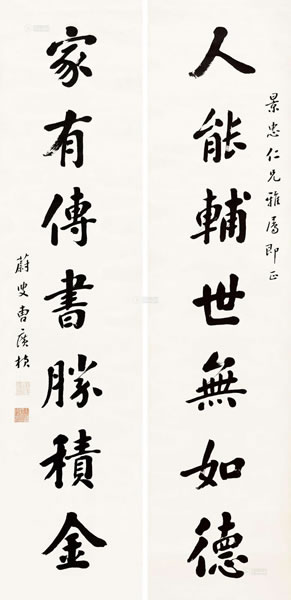 景忠仁兄雅属即正
人能輔世無如德
家有傳書勝積金
蔚叟曹廣楨